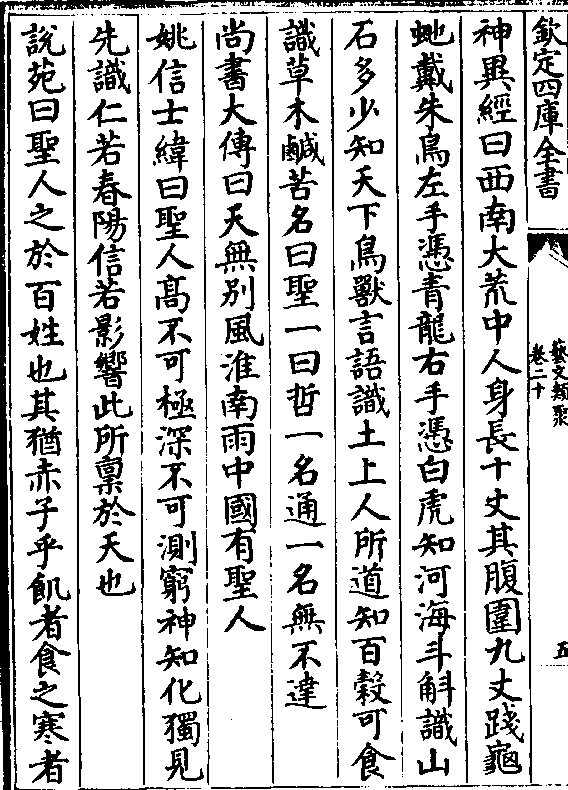 欽定四庫全書
藝文類聚
卷二十
五
神異經曰西南大荒中人身長十丈其腹圍九丈踐龜
虵戴朱鳥左手憑青龍右手憑白虎知河海斗斛識山
石多少知天下鳥獸言語識土上人所道知百穀可食
識草木鹹苦名曰聖一曰哲一名通一名無不達
尚書大傳曰天無別風淮南雨中國有聖人
姚信士緯曰聖人高不可極深不可測窮神知化獨見
先識仁若春陽信若影響此所稟於天也
說苑曰聖人之於百姓也其猶赤子乎飢者食之寒者